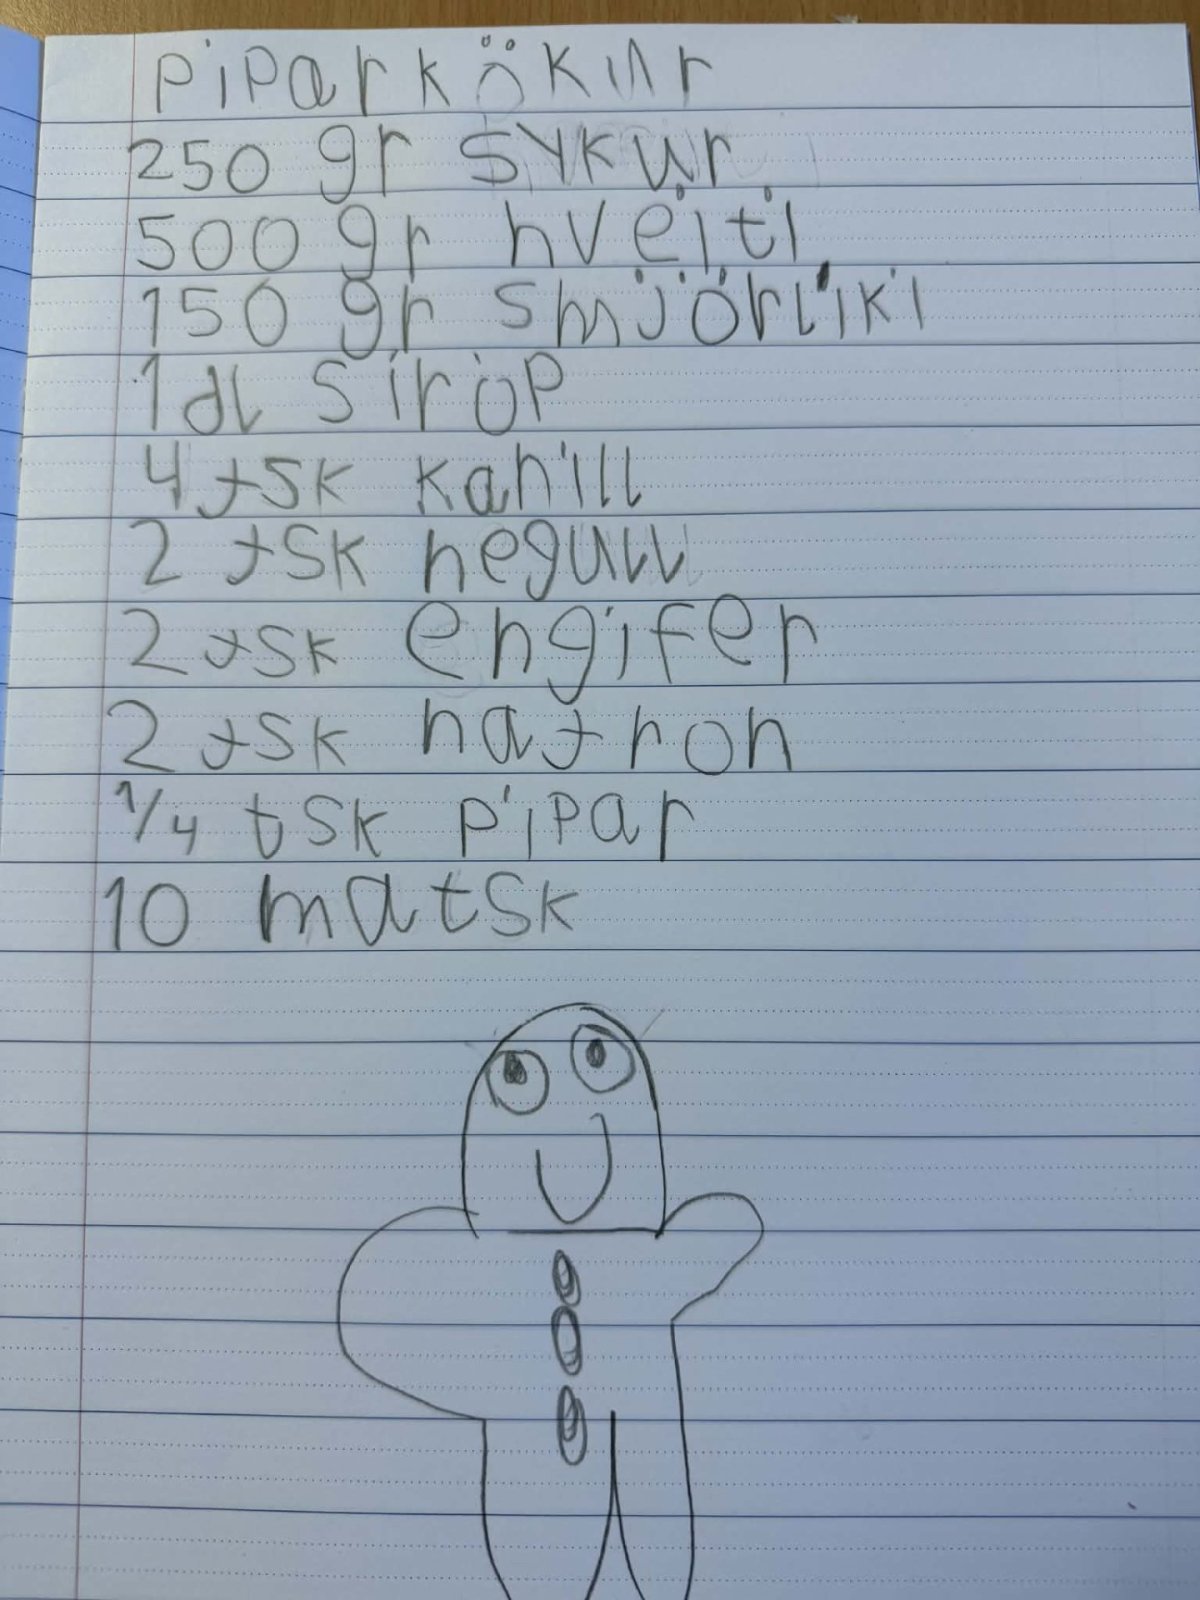 piparkökur
250 gr sykur
500 gr hveiti
150 gr smjörlíki
1 dl sirop
4 tsk kanill
2 tsk negull
2 tsk engifer
2 tsk natron
1/4 tsk pipar
10 matsk